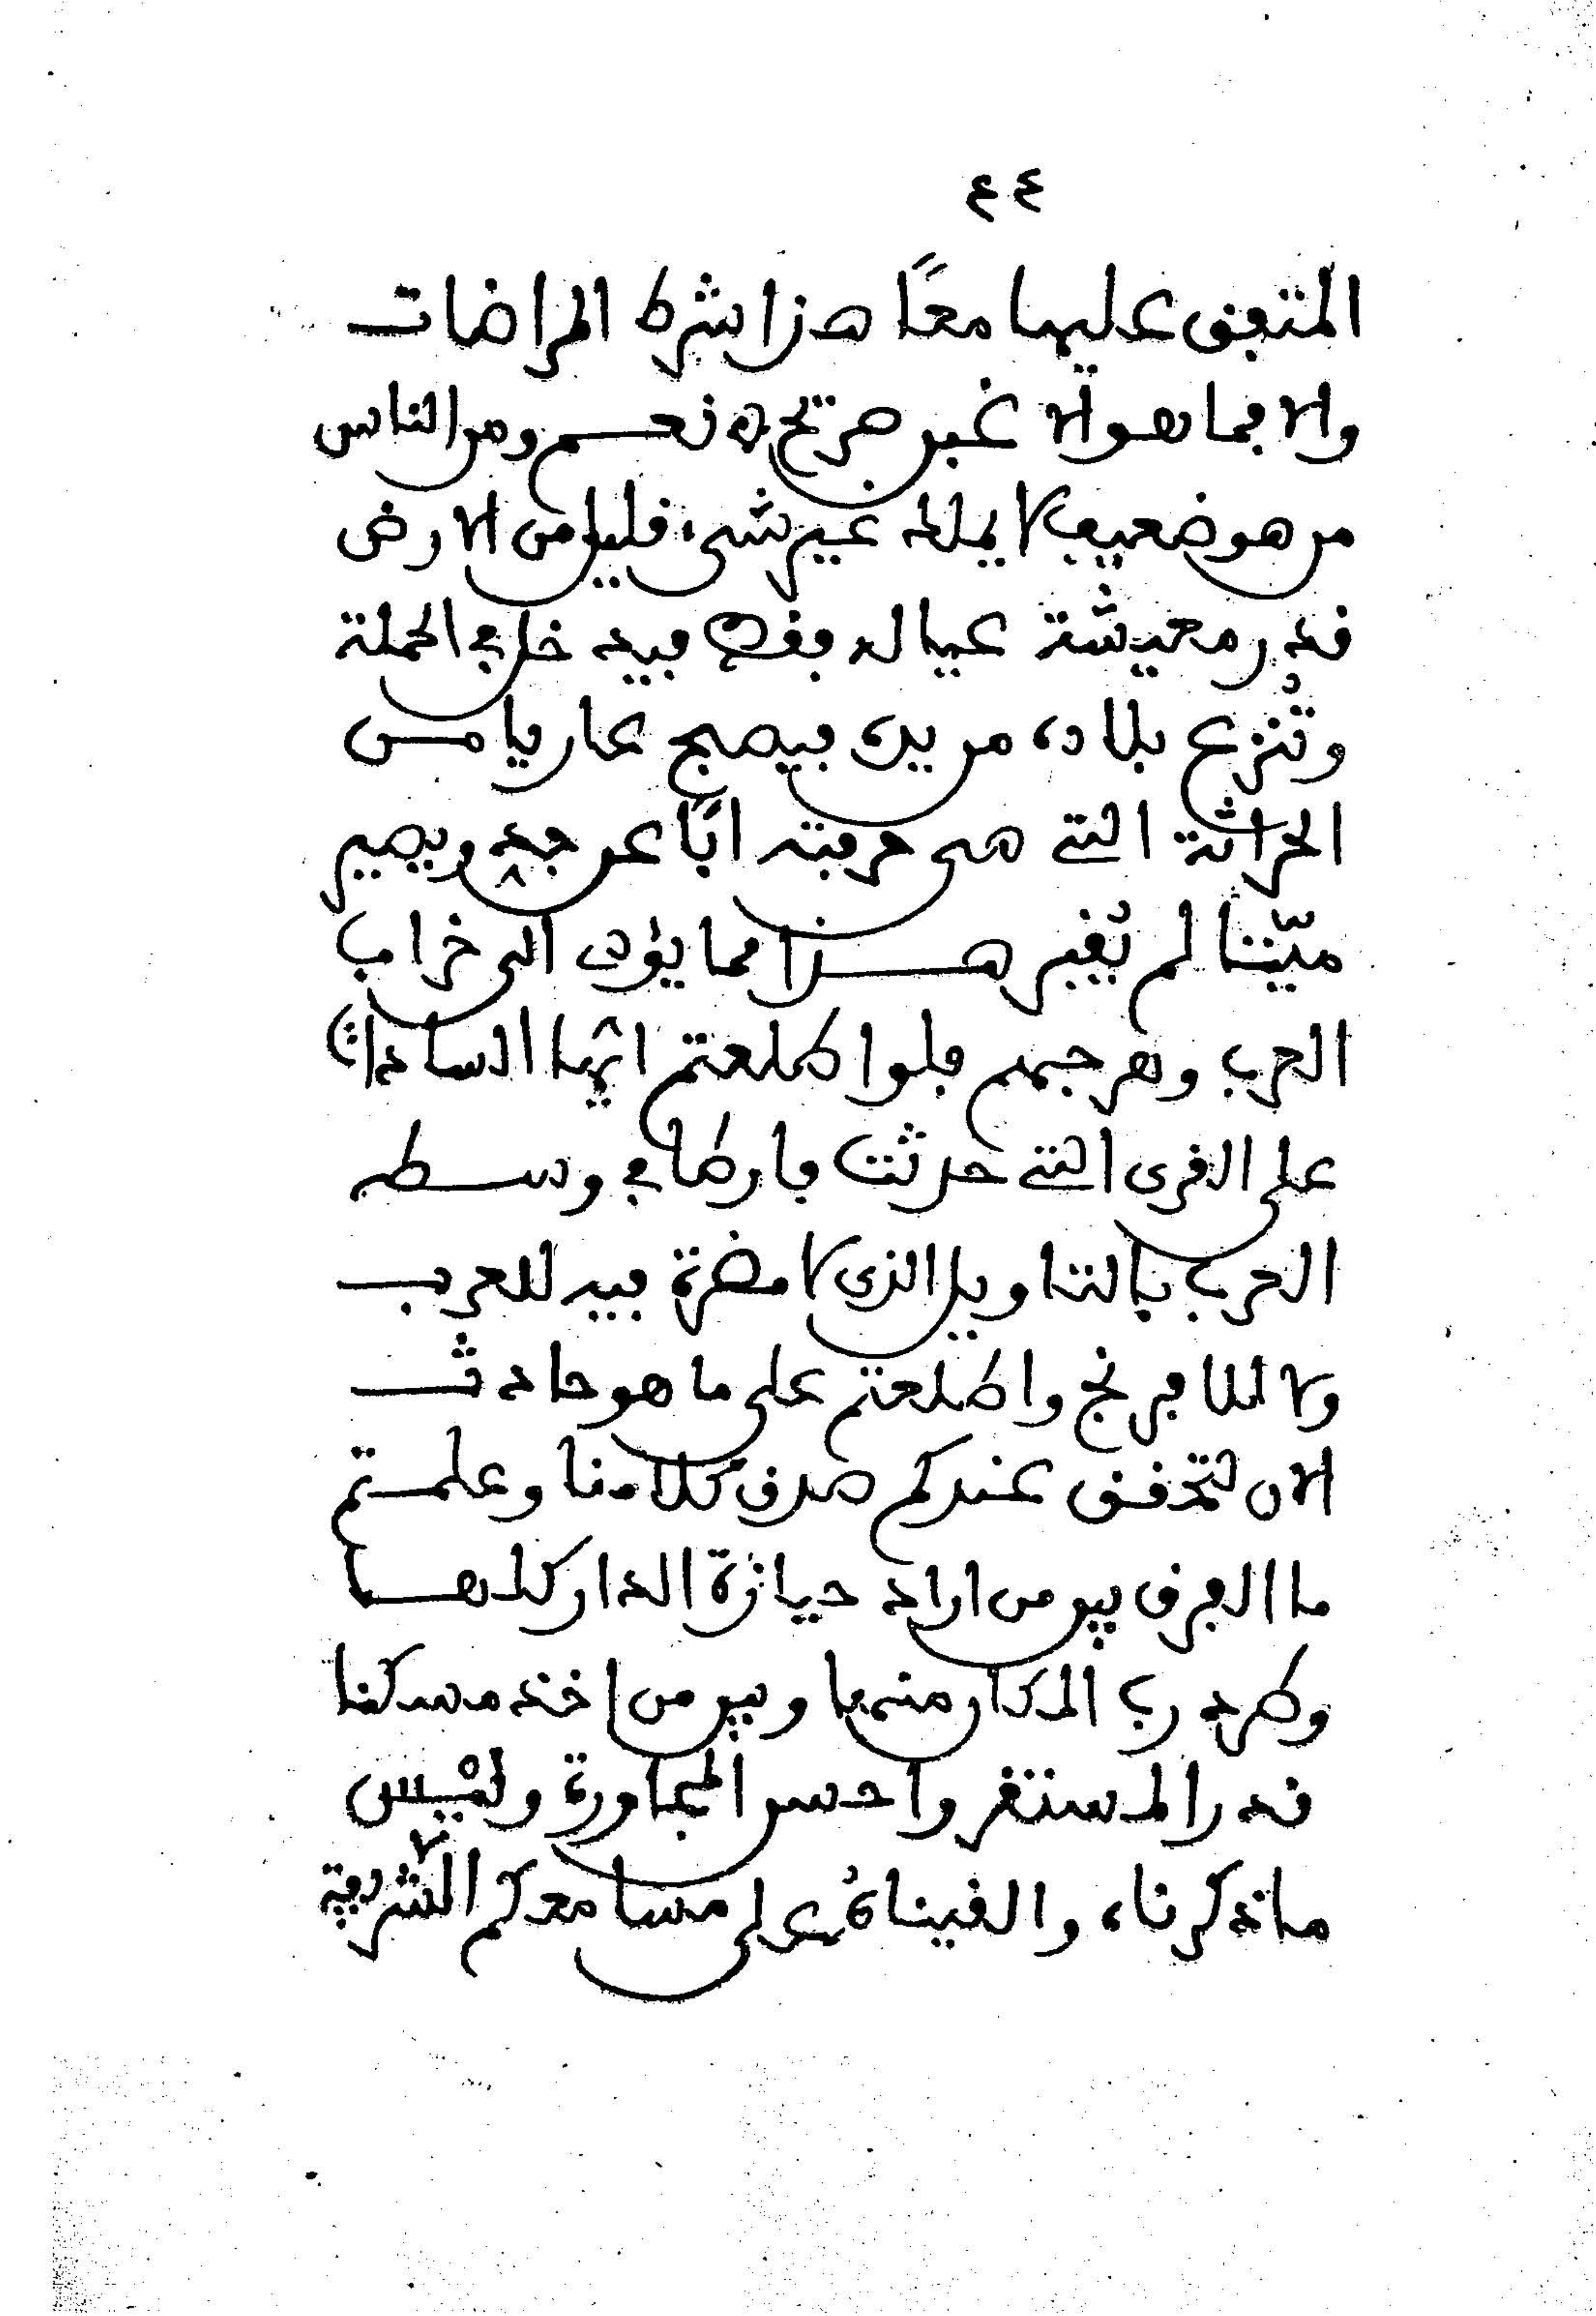 ٤٤
المتفق عليها معًا هذا شرط المراضات
والا فما هو الا غبن صريح نعم ومن الناس
من هو ضعيف لا يملك غير شيء قليل من الارض
قدر معيشة عياله فقط فيه خارج الحملة
وتُنزع بلاده من يده فيصبح عاريا من
الحراثة التي هي حرفته ابًا عن جد ويصير
ميّتا لم يُقبر هذا مما يؤدي الى خراب
العرب وهرجهم فلو اطلعتم ايها السادات
على القرى التي حدثت باوطا في وسط
العرب بالتاويل الذي لا مضرة فيه للعرب
ولا للافرنج واطلعتم على ما هو حادث
الان لتحقق عندكم صدق كلامنا وعلمتم
ما الفرق بين من اراد حيازة الدار كلها
وطرد رب الدار منها وبين من اخذ مسكنا
قدر المستقر واحسن المجاورة وليْس
ما ذكرناه والقيناهُ على مسامعكم الشريفة